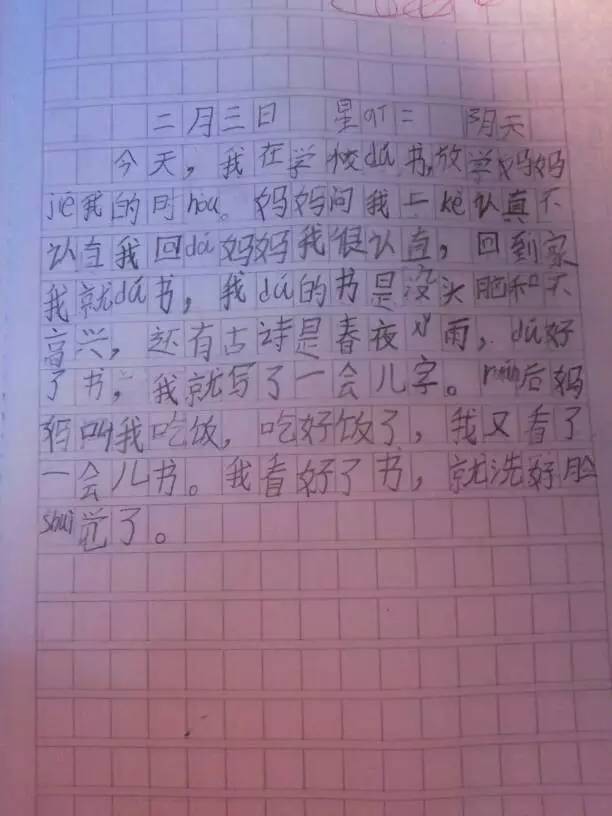 二月三日 星qī二 阴天
今天，我在学校dú书，放学妈妈
jiē我的时hòu。妈妈问我上kè认真不
认真我回dá妈妈我很认真，回到家
我就dú书，我dú的书是没头脑和不
高兴，还有古诗是春夜xǐ雨，dú好
了书，我就写了一会儿字。rán后妈
妈叫我吃饭，吃好饭了，我又看了
一会儿书。我看好了书，就洗好脸
shuì觉了。